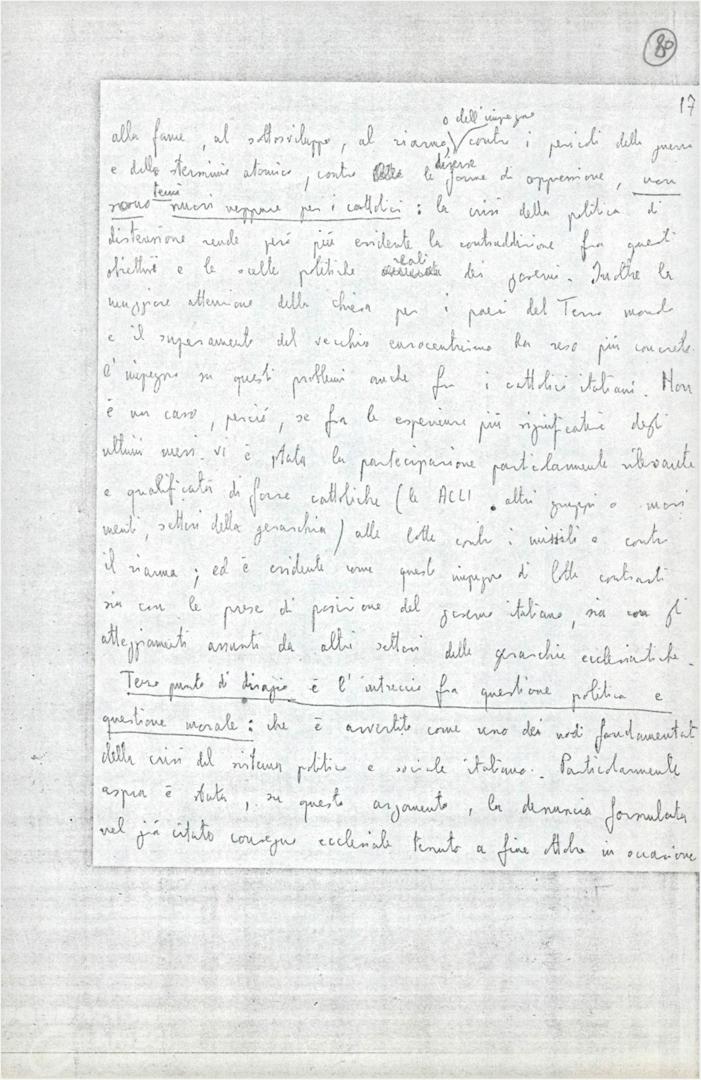 80
17
o dell'impegno
alla fame, al sottosviluppo, al riarmo, contro i pericoli della guerra
e dello sterminio atomico, contro le diverse forme di oppressione, non
sono temi nuovi neppure per i cattolici: la crisi della politica di
distensione rende però più evidente la contraddizione fra questi
obiettivi e le scelte politiche reali dei governi. Inoltre la
maggiore attenzione della chiesa per i paesi del Terzo mondo
e il superamento del vecchio eurocentrismo ha reso più concreto
l'impegno su questi problemi anche fra i cattolici italiani. Non
è un caso, perciò, se fra le esperienze più significative degli
ultimi mesi vi è stata la partecipazione particolarmente rilevante
e qualificata di forze cattoliche (le ACLI, altri gruppi o movi
menti, settori della gerarchia) alle lotte contro i missili e contro
il riarmo; ed è evidente come questo impegno di lotte contrasti
sia con le prese di posizione del governo italiano, sia con gli
atteggiamenti assunti da altri settori delle gerarchie ecclesiastiche.
Terzo punto di disagio è l'intreccio fra questione politica e
questione morale: che è avvertito come uno dei nodi fondamentali
della crisi del sistema politico e sociale italiano. Particolarmente
aspra è stata, su questo argomento, la denuncia formulata
nel già citato convegno ecclesiale tenuto a fine ottobre in occasione